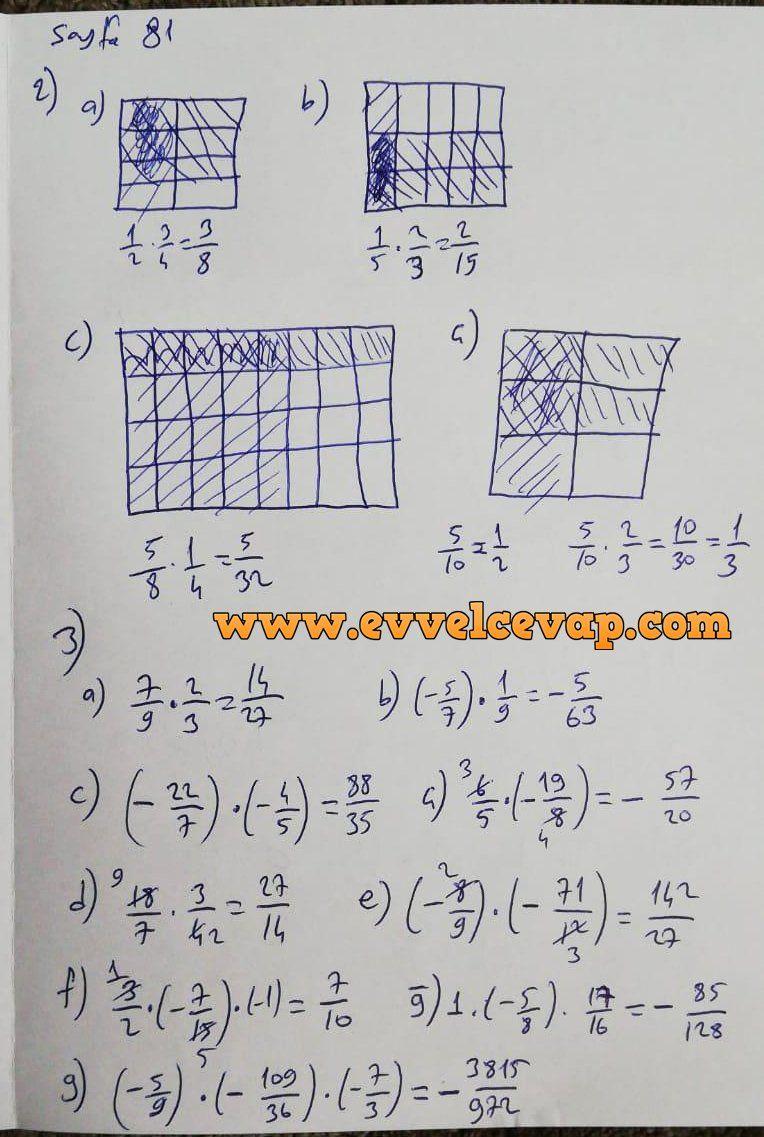 Sayfa 81
2) a) b)
1/2 · 3/4 = 3/8
1/5 · 2/3 = 2/15
c) ç)
5/8 · 1/4 = 5/32
5/10 = 1/2 5/10 · 2/3 = 10/30 = 1/3
www.evvelcevap.com
3)
a) 7/9 · 2/3 = 14/27 b) (-5/7) · 1/9 = -5/63
c) (-22/7) · (-4/5) = 88/35 ç) 3 6/5 · (-19/8 4) = -57/20
d) 9 18/7 · 3/4 2 = 27/14 e) (-2 8/9) · (-71/12 3) = 142/27
f) 1 3/2 · (-7/15 5) · (-1) = 7/10 ğ) 1 · (-5/8) · 17/16 = -85/128
g) (-5/9) · (-109/36) · (-7/3) = -3815/972